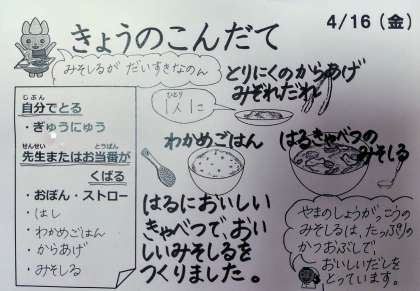 4/16(金)
きょうのこんだて
みそしるが だいすきなのん
とりにくのからあげ
みぞれだれ
ひとり
1人に
じぶん
自分でとる
・ぎゅうにゅう
せんせい とうばん
先生またはお当番が
くばる
・おぼん・ストロー
・はし
・わかめごはん
・からあげ
・みそしる
わかめごはん
はるきゃべつの
みそしる
はるにおいしい
きゃべつで、おい
しいみそしるを
つくりました。
やまのしょうがっこうの
みそしるは、たっぷりの
かつおぶしで、
おいしいだしを
とっています。